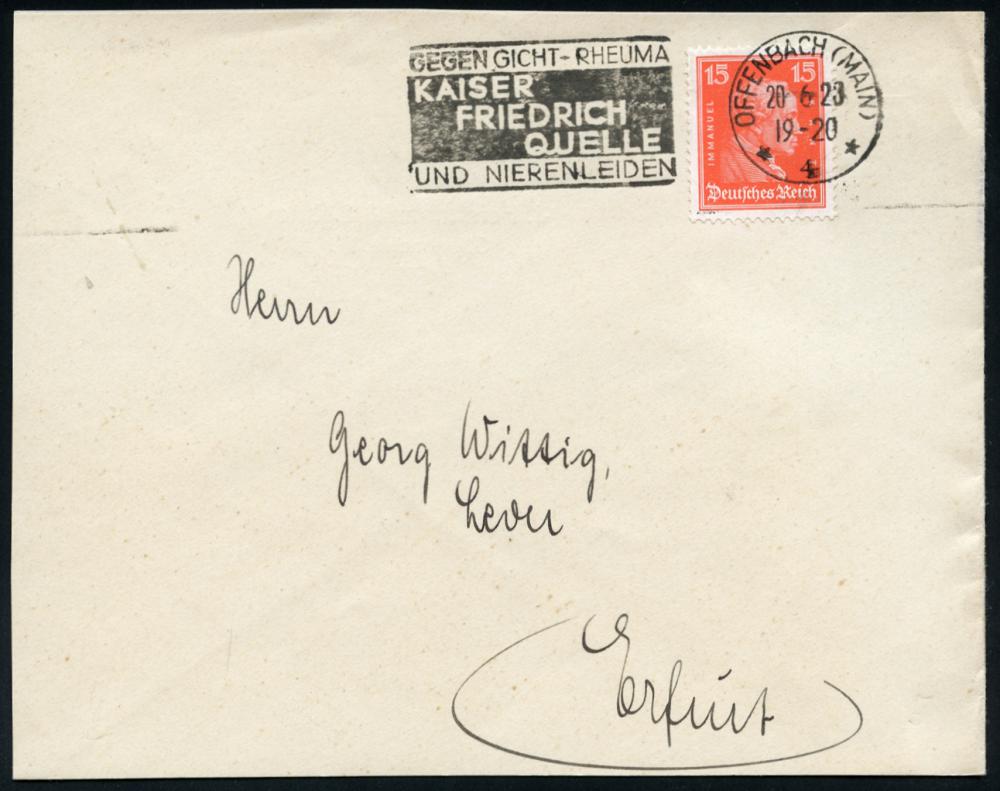 GEGEN GICHT-RHEUMA
KAISER
FRIEDRICH
QUELLE
UND NIERENLEIDEN
15 15
IMMANUEL
Deutsches Reich
OFFENBACH (MAIN)
20 6 28
19-20
Herrn
Georg Wittig,
Erfurt